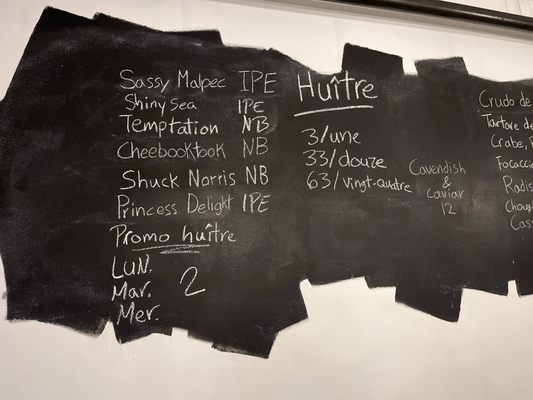 Sassy Malpec IPE
Shiny Sea IPE
Temptation NB
Cheebooktook NB
Shuck Norris NB
Princess Delight IPE
Promo huître
LUN.
Mar. 2
Mer.
Huître
3/une
33/douze
63/vingt-quatre
Cavendish
&
caviar
12
Crudo de
Tartare de
Crabe,
Focaccia
Radis